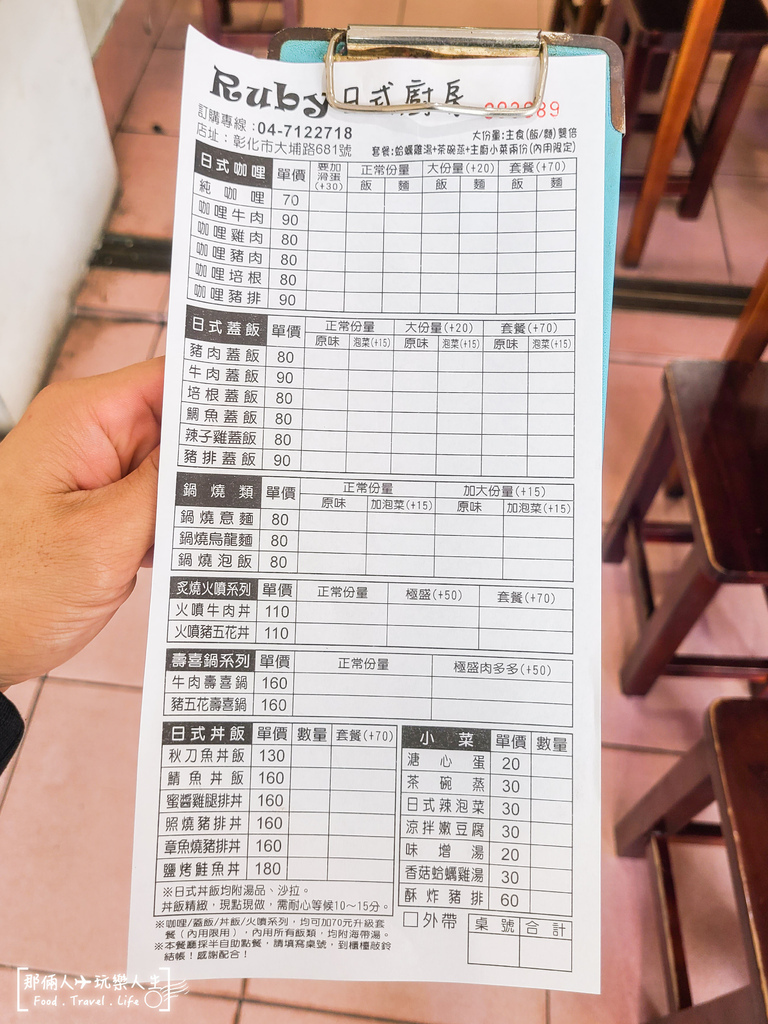 Ruby日式廚房
訂購專線：04-7122718
店址：彰化市大埔路681號
大份量:主食(飯/麵)雙倍
套餐:蛤蠣雞湯+茶碗蒸+主廚小菜兩份(內用限定)
日式咖哩 單價 要加滑蛋(+30) 正常份量 大份量(+20) 套餐(+70)
飯 麵 飯 麵 飯 麵
純咖哩 70
咖哩牛肉 90
咖哩雞肉 80
咖哩豬肉 80
咖哩培根 80
咖哩豬排 90
日式蓋飯 單價 正常份量 大份量(+20) 套餐(+70)
原味 泡菜(+15) 原味 泡菜(+15) 原味 泡菜(+15)
豬肉蓋飯 80
牛肉蓋飯 90
培根蓋飯 80
鯛魚蓋飯 80
辣子雞蓋飯 80
豬排蓋飯 90
鍋燒類 單價 正常份量 加大份量(+15)
原味 加泡菜(+15) 原味 加泡菜(+15)
鍋燒意麵 80
鍋燒烏龍麵 80
鍋燒泡飯 80
炙燒火噴系列 單價 正常份量 極盛(+50) 套餐(+70)
火噴牛肉丼 110
火噴豬五花丼 110
壽喜鍋系列 單價 正常份量 極盛肉多多(+50)
牛肉壽喜鍋 160
豬五花壽喜鍋 160
日式丼飯 單價 數量 套餐(+70)
秋刀魚丼飯 130
鯖魚丼飯 160
蜜醬雞腿排丼 160
照燒豬排丼 160
章魚燒豬排丼 160
鹽烤鮭魚丼 180
※日式丼飯均附湯品、沙拉。
丼飯精緻，現點現做，需耐心等候10～15分。
小菜 單價 數量
溏心蛋 20
茶碗蒸 30
日式辣泡菜 30
涼拌嫩豆腐 30
味增湯 20
香菇蛤蠣雞湯 30
酥炸豬排 60
□外帶 桌號 合計
※咖哩/蓋飯/丼飯/火噴系列，均可加70元升級套
餐（內用限用），內用所有飯類，均附海帶湯。
※本餐廳採半自助點餐，請填寫桌號，到櫃檯敲鈴
結帳！感謝配合！
那倆人✈玩樂人生
Food . Travel . Life